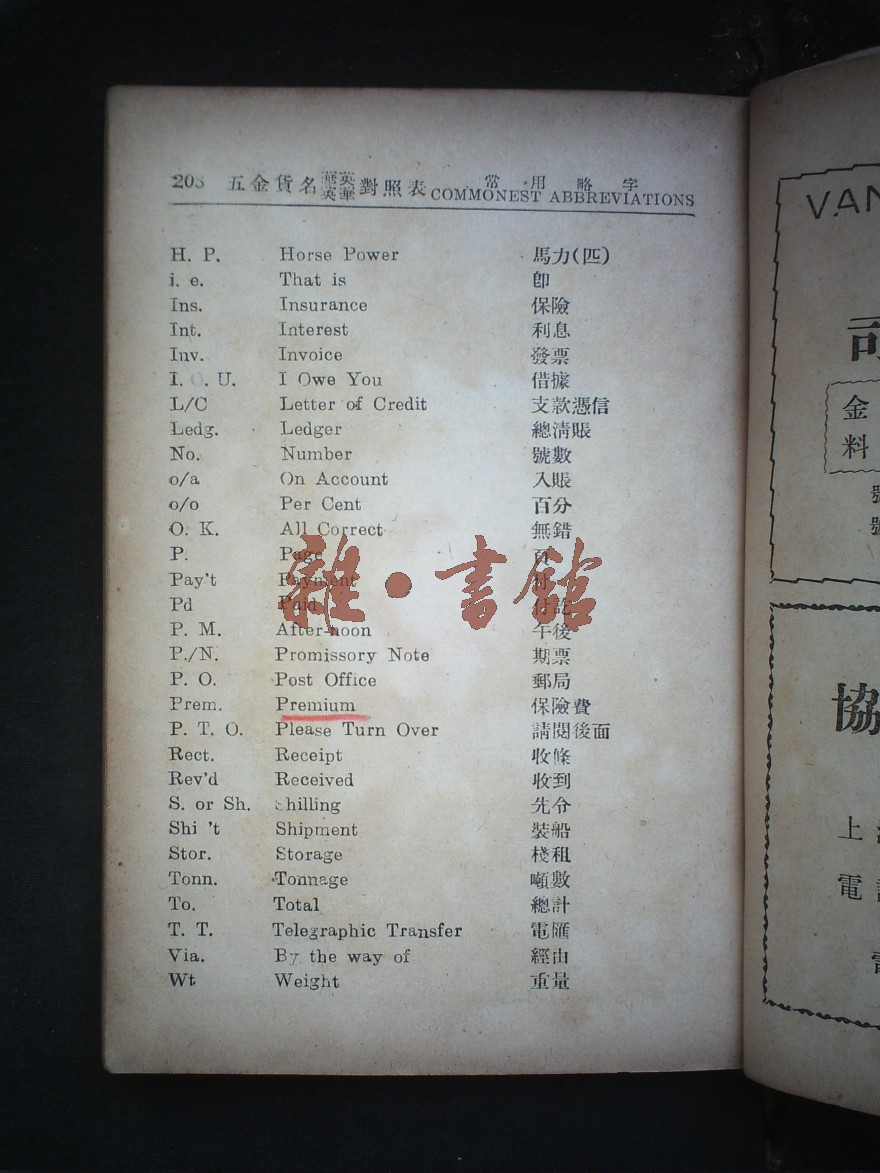 208 五金貨名華英英華對照表 常用略字 COMMONEST ABBREVIATIONS
H. P. Horse Power 馬力(匹)
i. e. That is 卽
Ins. Insurance 保險
Int. Interest 利息
Inv. Invoice 發票
I. O. U. I Owe You 借據
L/C Letter of Credit 支款憑信
Ledg. Ledger 總淸賬
No. Number 號數
o/a On Account 入賬
o/o Per Cent 百分
O. K. All Correct 無錯
P. Page 頁
Pay't Payment
Pd Paid 付訖
P. M. After-noon 午後
P./N. Promissory Note 期票
P. O. Post Office 郵局
Prem. Premium 保險費
P. T. O. Please Turn Over 請閱後面
Rect. Receipt 收條
Rev'd Received 收到
S. or Sh. Shilling 先令
Shi 't Shipment 裝船
Stor. Storage 棧租
Tonn. Tonnage 噸數
To. Total 總計
T. T. Telegraphic Transfer 電匯
Via. By the way of 經由
Wt Weight 重量
雜·書館
VAN
司
金
料
號
號
協
上
電